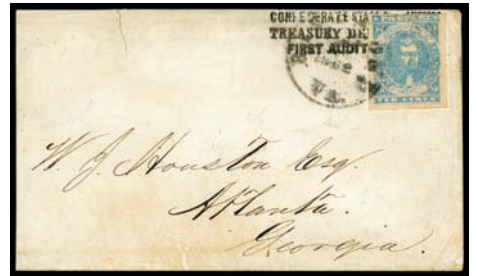 CONFEDERATE STATES
TREASURY DE
FIRST AUDIT
1862
VA.
TEN CENTS
W. J. Houston Esq.
Atlanta.
Georgia.